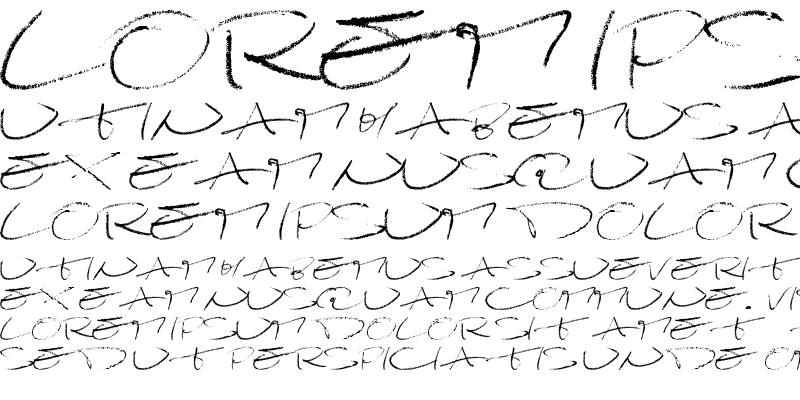 LOREM IPS
UTINAM HABEMUS A
EXEAM NUSQUAM C
LOREM IPSUM DOLOR
UTINAM HABEMUS ASSUEVERIT
EXEAM NUSQUAM COMMUNE. VI
LOREM IPSUM DOLOR SIT AMET
SED UT PERSPICIATIS UNDE OM